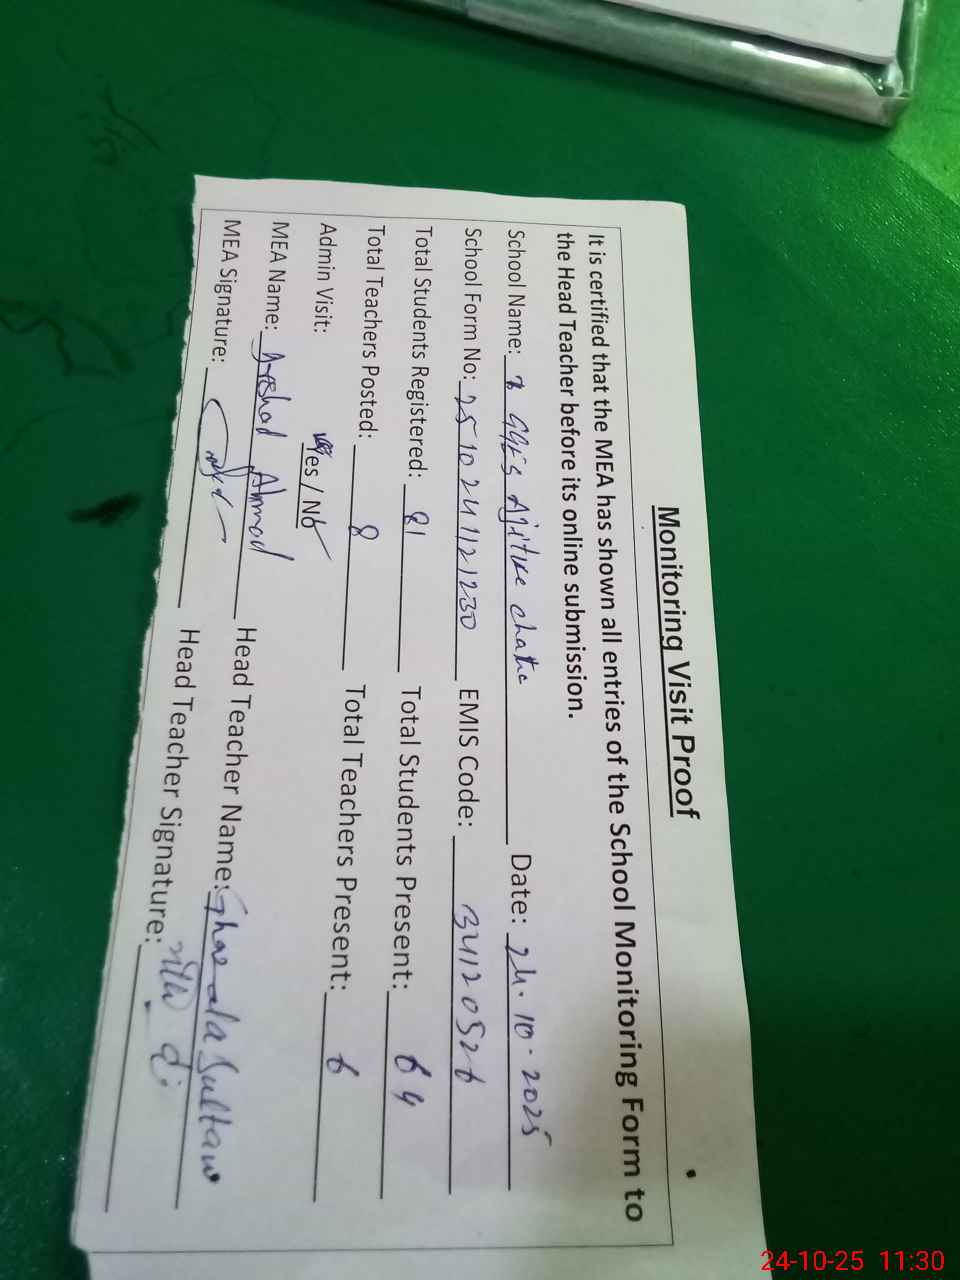 Monitoring Visit Proof
It is certified that the MEA has shown all entries of the School Monitoring Form to
the Head Teacher before its online submission.
School Name: chake Date: 24.10.2025
School Form No: 2510241121230 EMIS Code: 34120526
Total Students Registered: 81 Total Students Present: 64
Total Teachers Posted: 8 Total Teachers Present: 6
Admin Visit: Yes / No
MEA Name: Arshad Ahmad Head Teacher Name: Ghazala Sultan
MEA Signature: Head Teacher Signature:
24-10-25 11:30